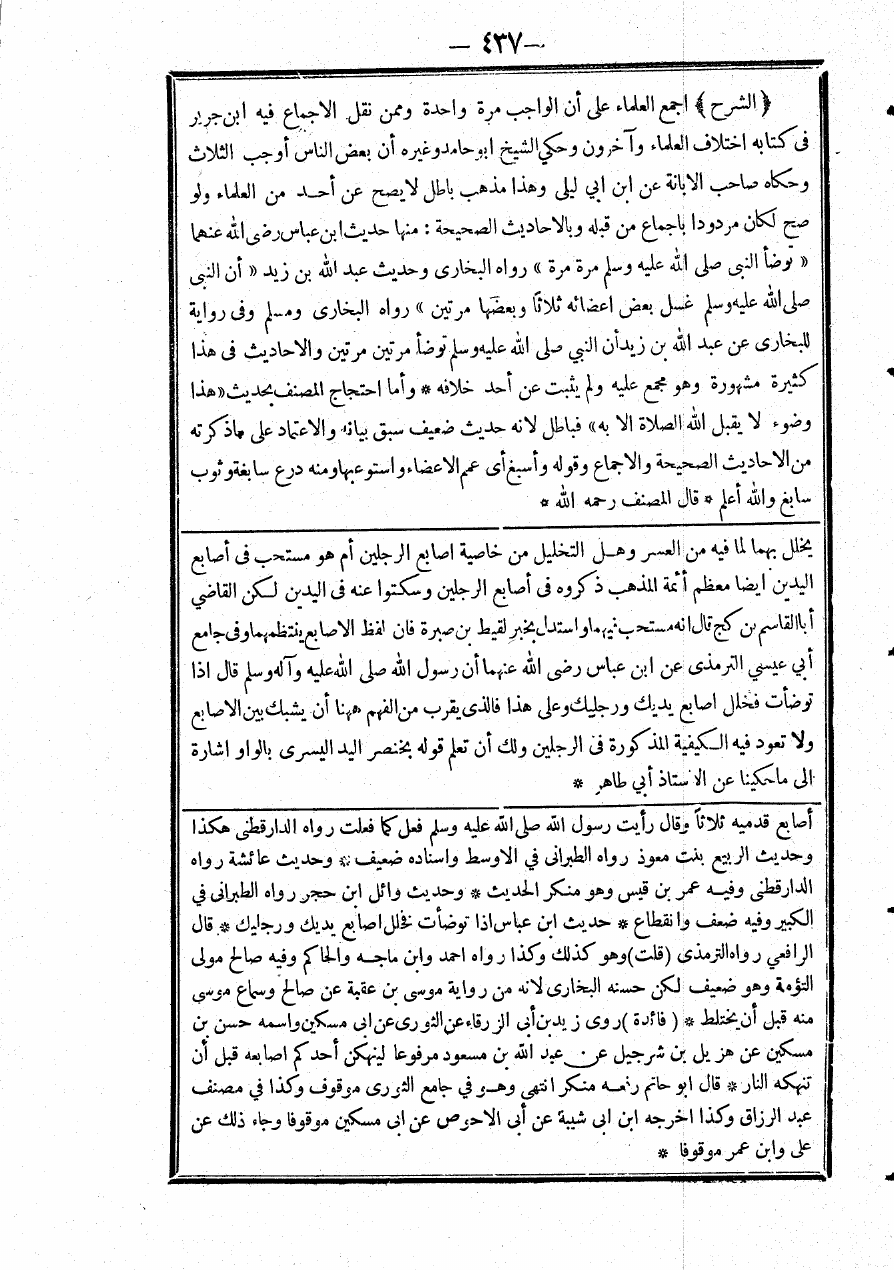 — ٤٣٧ —
﴿الشرح﴾ اجمع العلماء على أن الواجب مرة واحدة وممن نقل الاجماع فيه ابن جرير
فى كتابه اختلاف العلماء وآخرون وحكي الشيخ ابوحامد وغيره أن بعض الناس أوجب الثلاث
وحكاه صاحب الابانة عن ابن ابي ليلى وهذا مذهب باطل لا يصح عن أحد من العلماء ولو
صح لكان مردودا باجماع من قبله وبالاحاديث الصحيحة : منها حديث ابن عباس رضى الله عنهما
« توضأ النبى صلى الله عليه وسلم مرة مرة » رواه البخارى وحديث عبد الله بن زيد « أن النبى
صلى الله عليه وسلم غسل بعض اعضائه ثلاثا وبعضها مرتين » رواه البخارى ومسلم وفى رواية
للبخارى عن عبد الله بن زيد أن النبي صلى الله عليه وسلم توضأ مرتين مرتين والاحاديث فى هذا
كثيرة مشهورة وهو مجمع عليه ولم يثبت عن أحد خلافه * وأما احتجاج المصنف بحديث « هذا
وضوء لا يقبل الله الصلاة الا به » فباطل لانه حديث ضعيف سبق بيانه والاعتماد على ماذكرته
من الاحاديث الصحيحة والاجماع وقوله وأسبغ أى عم الاعضاء واستوعبها ومنه درع سابغة وثوب
سابغ والله أعلم * قال المصنف رحمه الله *
يخلل بهما لما فيه من العسر وهل التخليل من خاصية اصابع الرجلين أم هو مستحب فى أصابع
اليدين ايضا معظم أئمة المذهب ذكروه فى أصابع الرجلين وسكتوا عنه فى اليدين لكن القاضي
أبا القاسم بن كج قال انه مستحب فيهما واستدل بخبر لقيط بن صبرة فان لفظ الاصابع ينتظمهما وفى جامع
أبي عيسي الترمذى عن ابن عباس رضى الله عنهما أن رسول الله صلى الله عليه وآله وسلم قال اذا
توضأت فخلل اصابع يديك ورجليك وعلى هذا فالذى يقرب من الفهم ههنا أن يشبك بين الاصابع
ولا تعود فيه الكيفية المذكورة فى الرجلين ولك أن تعلم قوله بخنصر اليد اليسرى بالواو اشارة
الى ماحكينا عن الاستاذ أبي طاهر *
أصابع قدميه ثلاثاً وقال رأيت رسول الله صلى الله عليه وسلم فعل كما فعلت رواه الدارقطنى هكذا
وحديث الربيع بنت معوذ رواه الطبرانى في الاوسط واسناده ضعيف * وحديث عائشة رواه
الدارقطنى وفيه عمر بن قيس وهو منكر الحديث * وحديث وائل ابن حجر رواه الطبرانى في
الكبير وفيه ضعف وانقطاع * حديث ابن عباس اذا توضأت فخلل اصابع يديك ورجليك * قال
الرافعي رواه الترمذى (قلت) وهو كذلك وكذا رواه احمد وابن ماجه والحاكم وفيه صالح مولى
التؤمة وهو ضعيف لكن حسنه البخارى لانه من رواية موسى بن عقبة عن صالح وسماع موسي
منه قبل أن يختلط * (فائدة) روى زيد بن أبى الزرقاء عن الثورى عن ابى مسكين واسمه حسن بن
مسكين عن هزيل بن شرحبيل عن عبد الله بن مسعود مرفوعا لينهكن أحدكم اصابعه قبل أن
تنهكه النار * قال ابو حاتم رفعه منكر انتهى وهو في جامع الثورى موقوف وكذا في مصنف
عبد الرزاق وكذا اخرجه ابن ابى شيبة عن أبى الاحوص عن ابى مسكين موقوفا وجاء ذلك عن
على وابن عمر موقوفا *